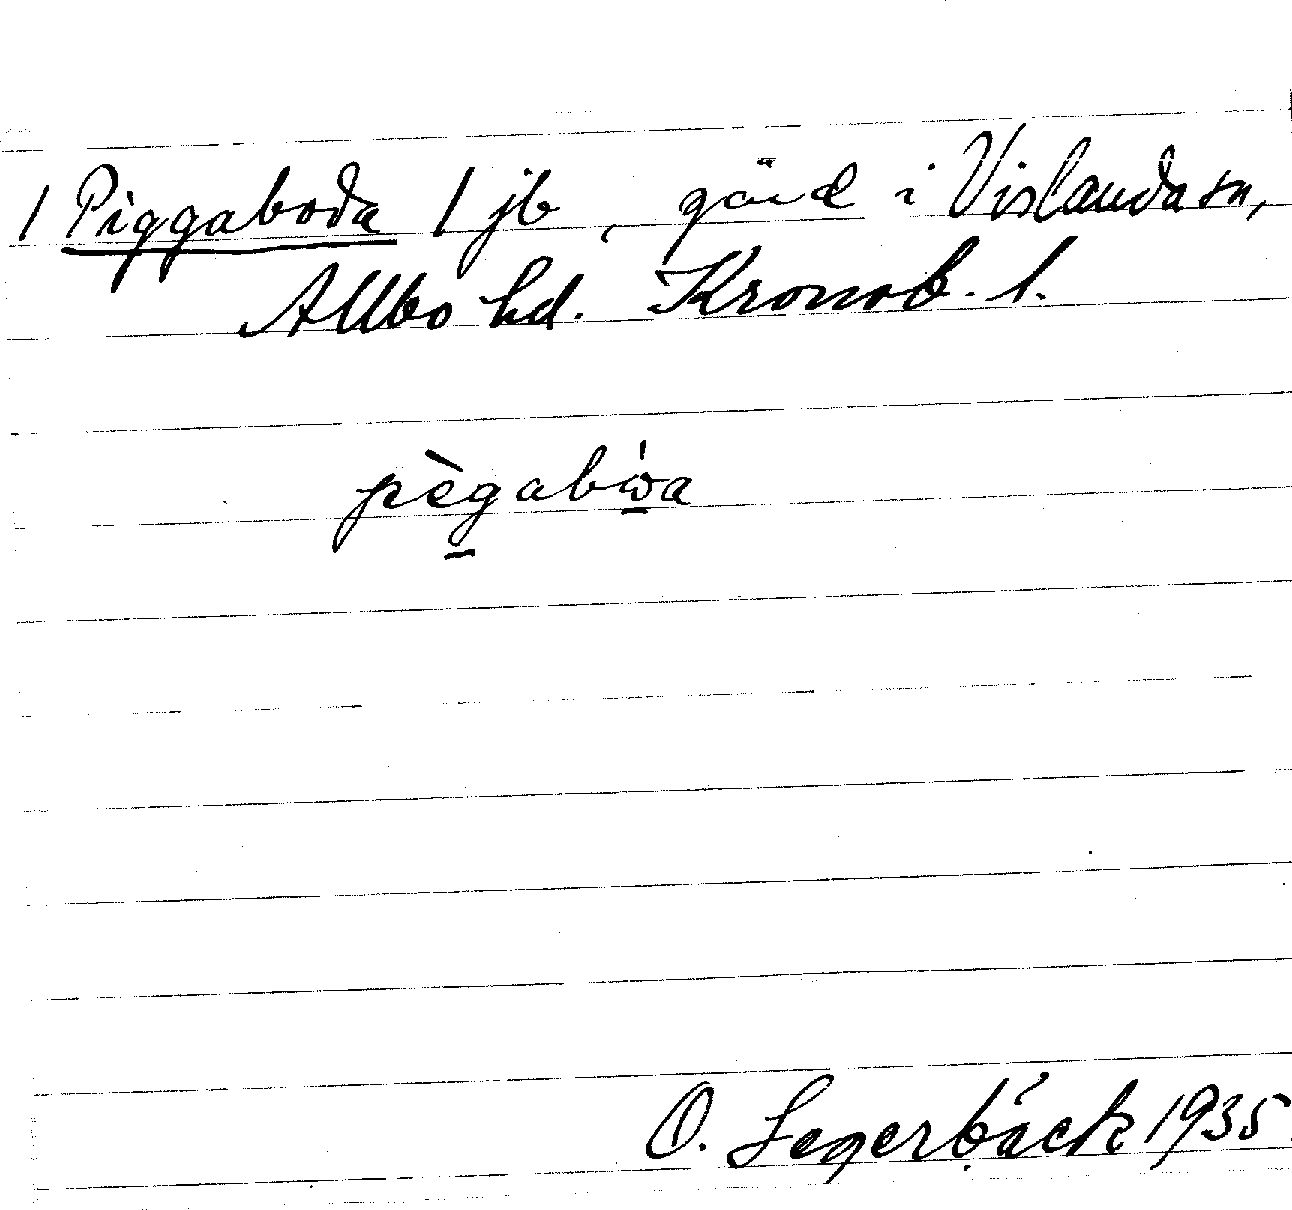 / Piggaboda / jb, gård i Vislanda sn,
Allbo hd. Kronob. l.
pègabωa
O. Segerbäck 1935